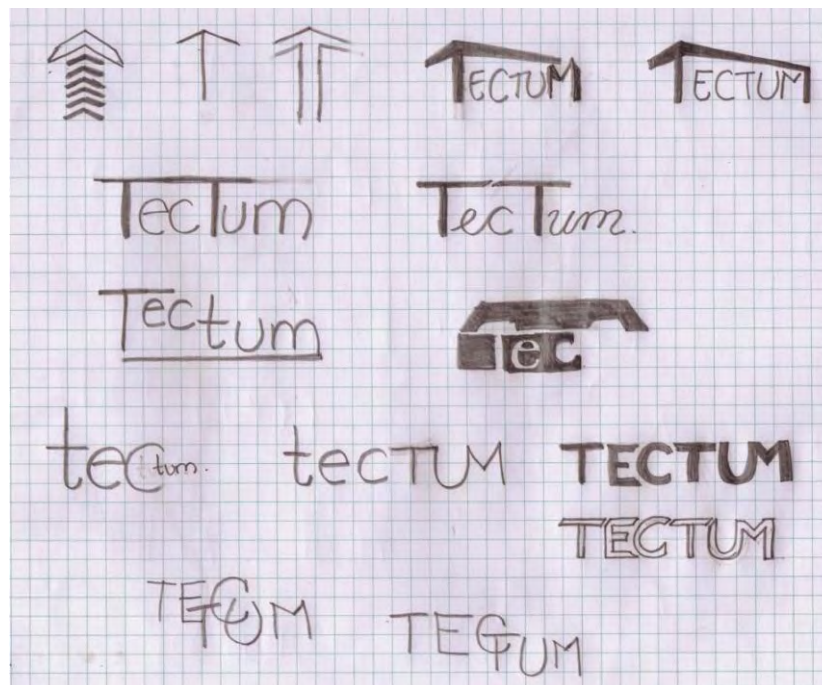 TECTUM TECTUM
TecTum TecTum.
Tectum Tec
tectum. tecTUM TECTUM
TECTUM
TECTUM TECTUM